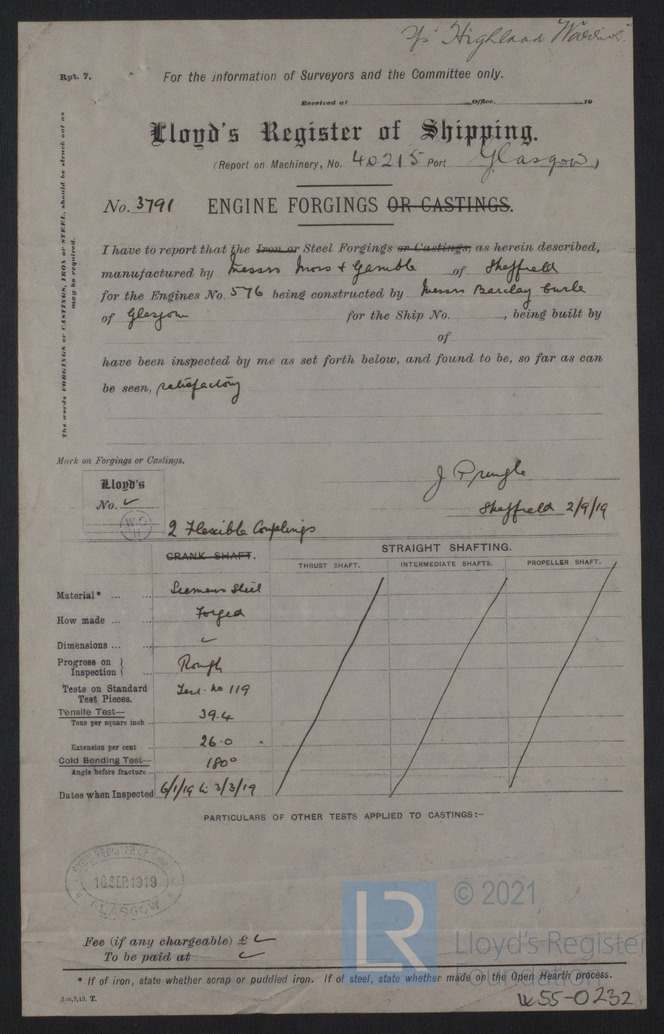 S/S Highland Warrior
Rpt. 7.
For the information of Surveyors and the Committee only.
Received at Office, 19
Lloyd's Register of Shipping.
(Report on Machinery, No. 40215 Port Glasgow)
No. 3791 ENGINE FORGINGS OR CASTINGS.
I have to report that the Iron or Steel Forgings or Castings, as herein described,
manufactured by Messrs Moss & Gamble of Sheffield
for the Engines No. 576 being constructed by Messrs Barclay Curle
of Glasgow for the Ship No. , being built by
of
have been inspected by me as set forth below, and found to be, so far as can
be seen, satisfactory
The words FORGINGS or CASTINGS, IRON or STEEL, should be struck out as
may be required.
Mark on Forgings or Castings.
Lloyd's
No. ✓
J Pringle
Sheffield 2/9/19
2 Flexible Couplings
CRANK SHAFT.
STRAIGHT SHAFTING.
THRUST SHAFT. INTERMEDIATE SHAFTS. PROPELLER SHAFT.
Material* ... ... Siemens Steel
How made ... ... Forged
Dimensions ... ... ✓
Progress on } Inspection } Rough
Tests on Standard Test Pieces. Test No 119
Tensile Test— Tons per square inch .. 39.4
Extension per cent 26.0
Cold Bending Test— Angle before fracture... 180°
Dates when Inspected 6/1/19 to 3/3/19
PARTICULARS OF OTHER TESTS APPLIED TO CASTINGS:—
LLOYD'S REGISTER OF SHIPPING
16 SEP. 1919
GLASGOW
Fee (if any chargeable) £ ✓
To be paid at ✓
* If of iron, state whether scrap or puddled iron. If of steel, state whether made on the Open Hearth process.
LR
© 2021
Lloyd's Register
Foundation
W55-0232